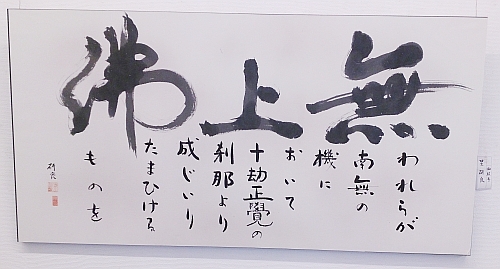 無上佛
われらが
南無の
機に
おいて
十劫正覺の
刹那より
成じいり
たまひける
ものを